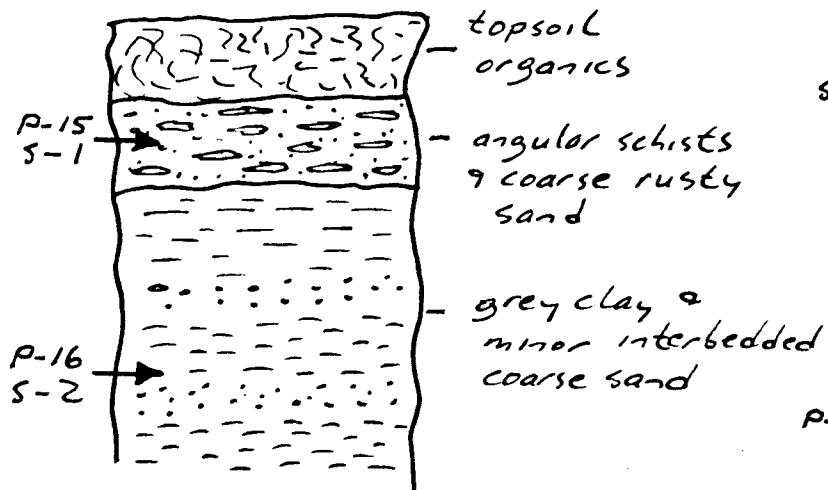 topsoil
organics
P-15
S-1
angular schists
& coarse rusty
sand
grey clay &
minor interbedded
coarse sand
P-16
S-2
s
p.